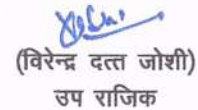 (विरेन्द्र दत्त जोशी)
उप राजिक